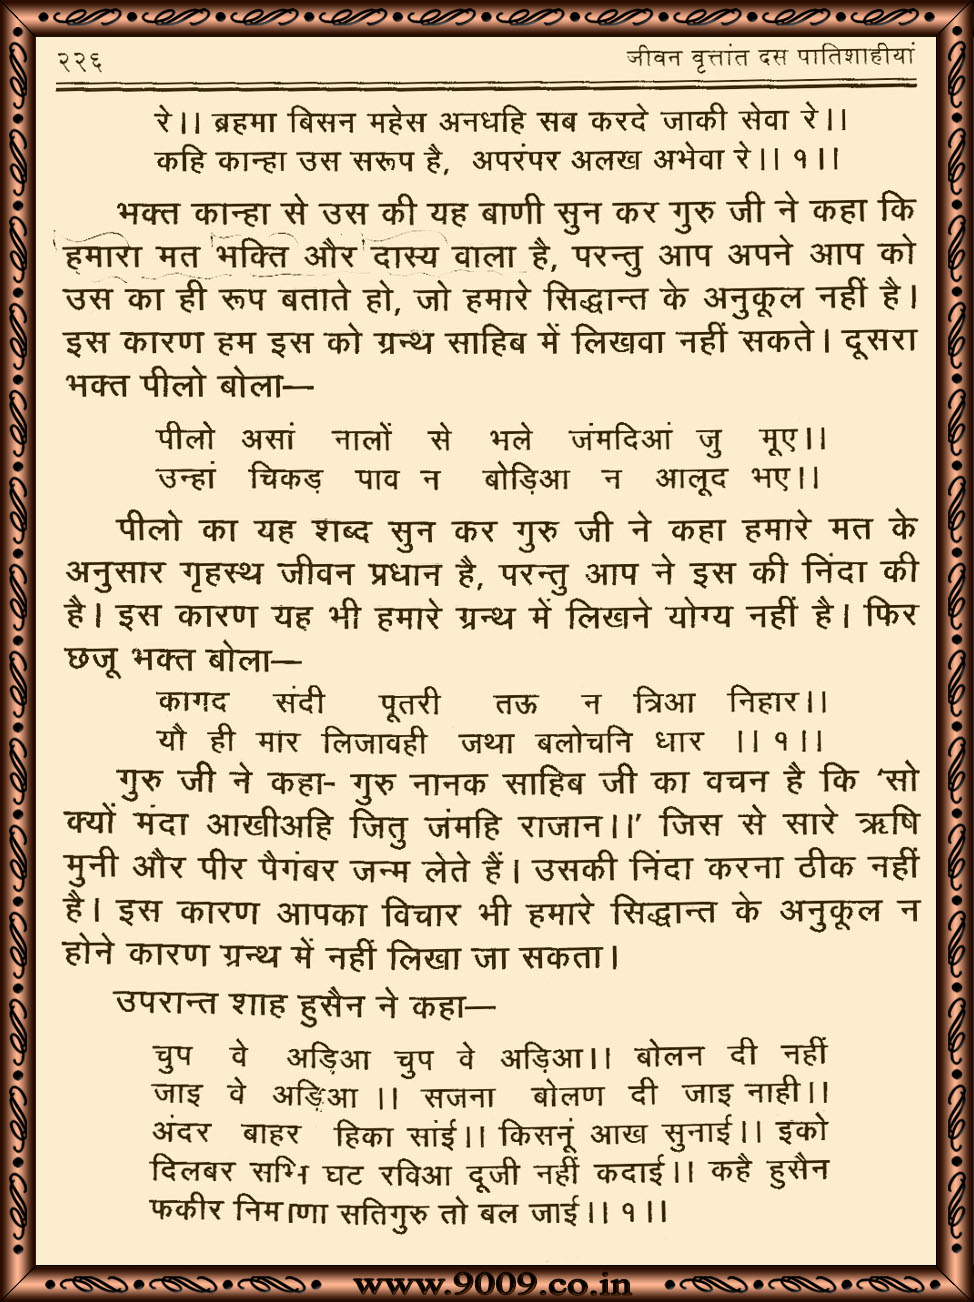 २२६ जीवन वृत्तांत दस पातिशाहीयां
रे।। ब्रहमा बिसन महेस अनधहि सब करदे जाकी सेवा रे।।
कहि कान्हा उस सरूप है, अपरंपर अलख अभेवा रे।। १।।
भक्त कान्हा से उस की यह बाणी सुन कर गुरु जी ने कहा कि
हमारा मत भक्ति और दास्य वाला है, परन्तु आप अपने आप को
उस का ही रूप बताते हो, जो हमारे सिद्धान्त के अनुकूल नहीं है।
इस कारण हम इस को ग्रन्थ साहिब में लिखवा नहीं सकते। दूसरा
भक्त पीलो बोला—
पीलो असां नालों से भले जंमदिआं जु मूए।।
उन्हां चिकड़ पाव न बोड़िआ न आलूद भए।।
पीलो का यह शब्द सुन कर गुरु जी ने कहा हमारे मत के
अनुसार गृहस्थ जीवन प्रधान है, परन्तु आप ने इस की निंदा की
है। इस कारण यह भी हमारे ग्रन्थ में लिखने योग्य नहीं है। फिर
छजू भक्त बोला—
कागद संदी पूतरी तऊ न त्रिआ निहार।।
यौ ही मार लिजावही जथा बलोचनि धार ।।१।।
गुरु जी ने कहा- गुरु नानक साहिब जी का वचन है कि 'सो
क्यों मंदा आखीअहि जितु जंमहि राजान।।' जिस से सारे ऋषि
मुनी और पीर पैगंबर जन्म लेते हैं। उसकी निंदा करना ठीक नहीं
है। इस कारण आपका विचार भी हमारे सिद्धान्त के अनुकूल न
होने कारण ग्रन्थ में नहीं लिखा जा सकता।
उपरान्त शाह हुसैन ने कहा—
चुप वे अड़िआ चुप वे अड़िआ।। बोलन दी नहीं
जाइ वे अड़िआ ।। सजना बोलण दी जाइ नाही।।
अंदर बाहर हिका सांई।। किसनूं आख सुनाई।। इको
दिलबर सभि घट रविआ दूजी नहीं कदाई।। कहै हुसैन
फकीर निमाणा सतिगुरु तो बल जाई।। १।।
www.9009.co.in